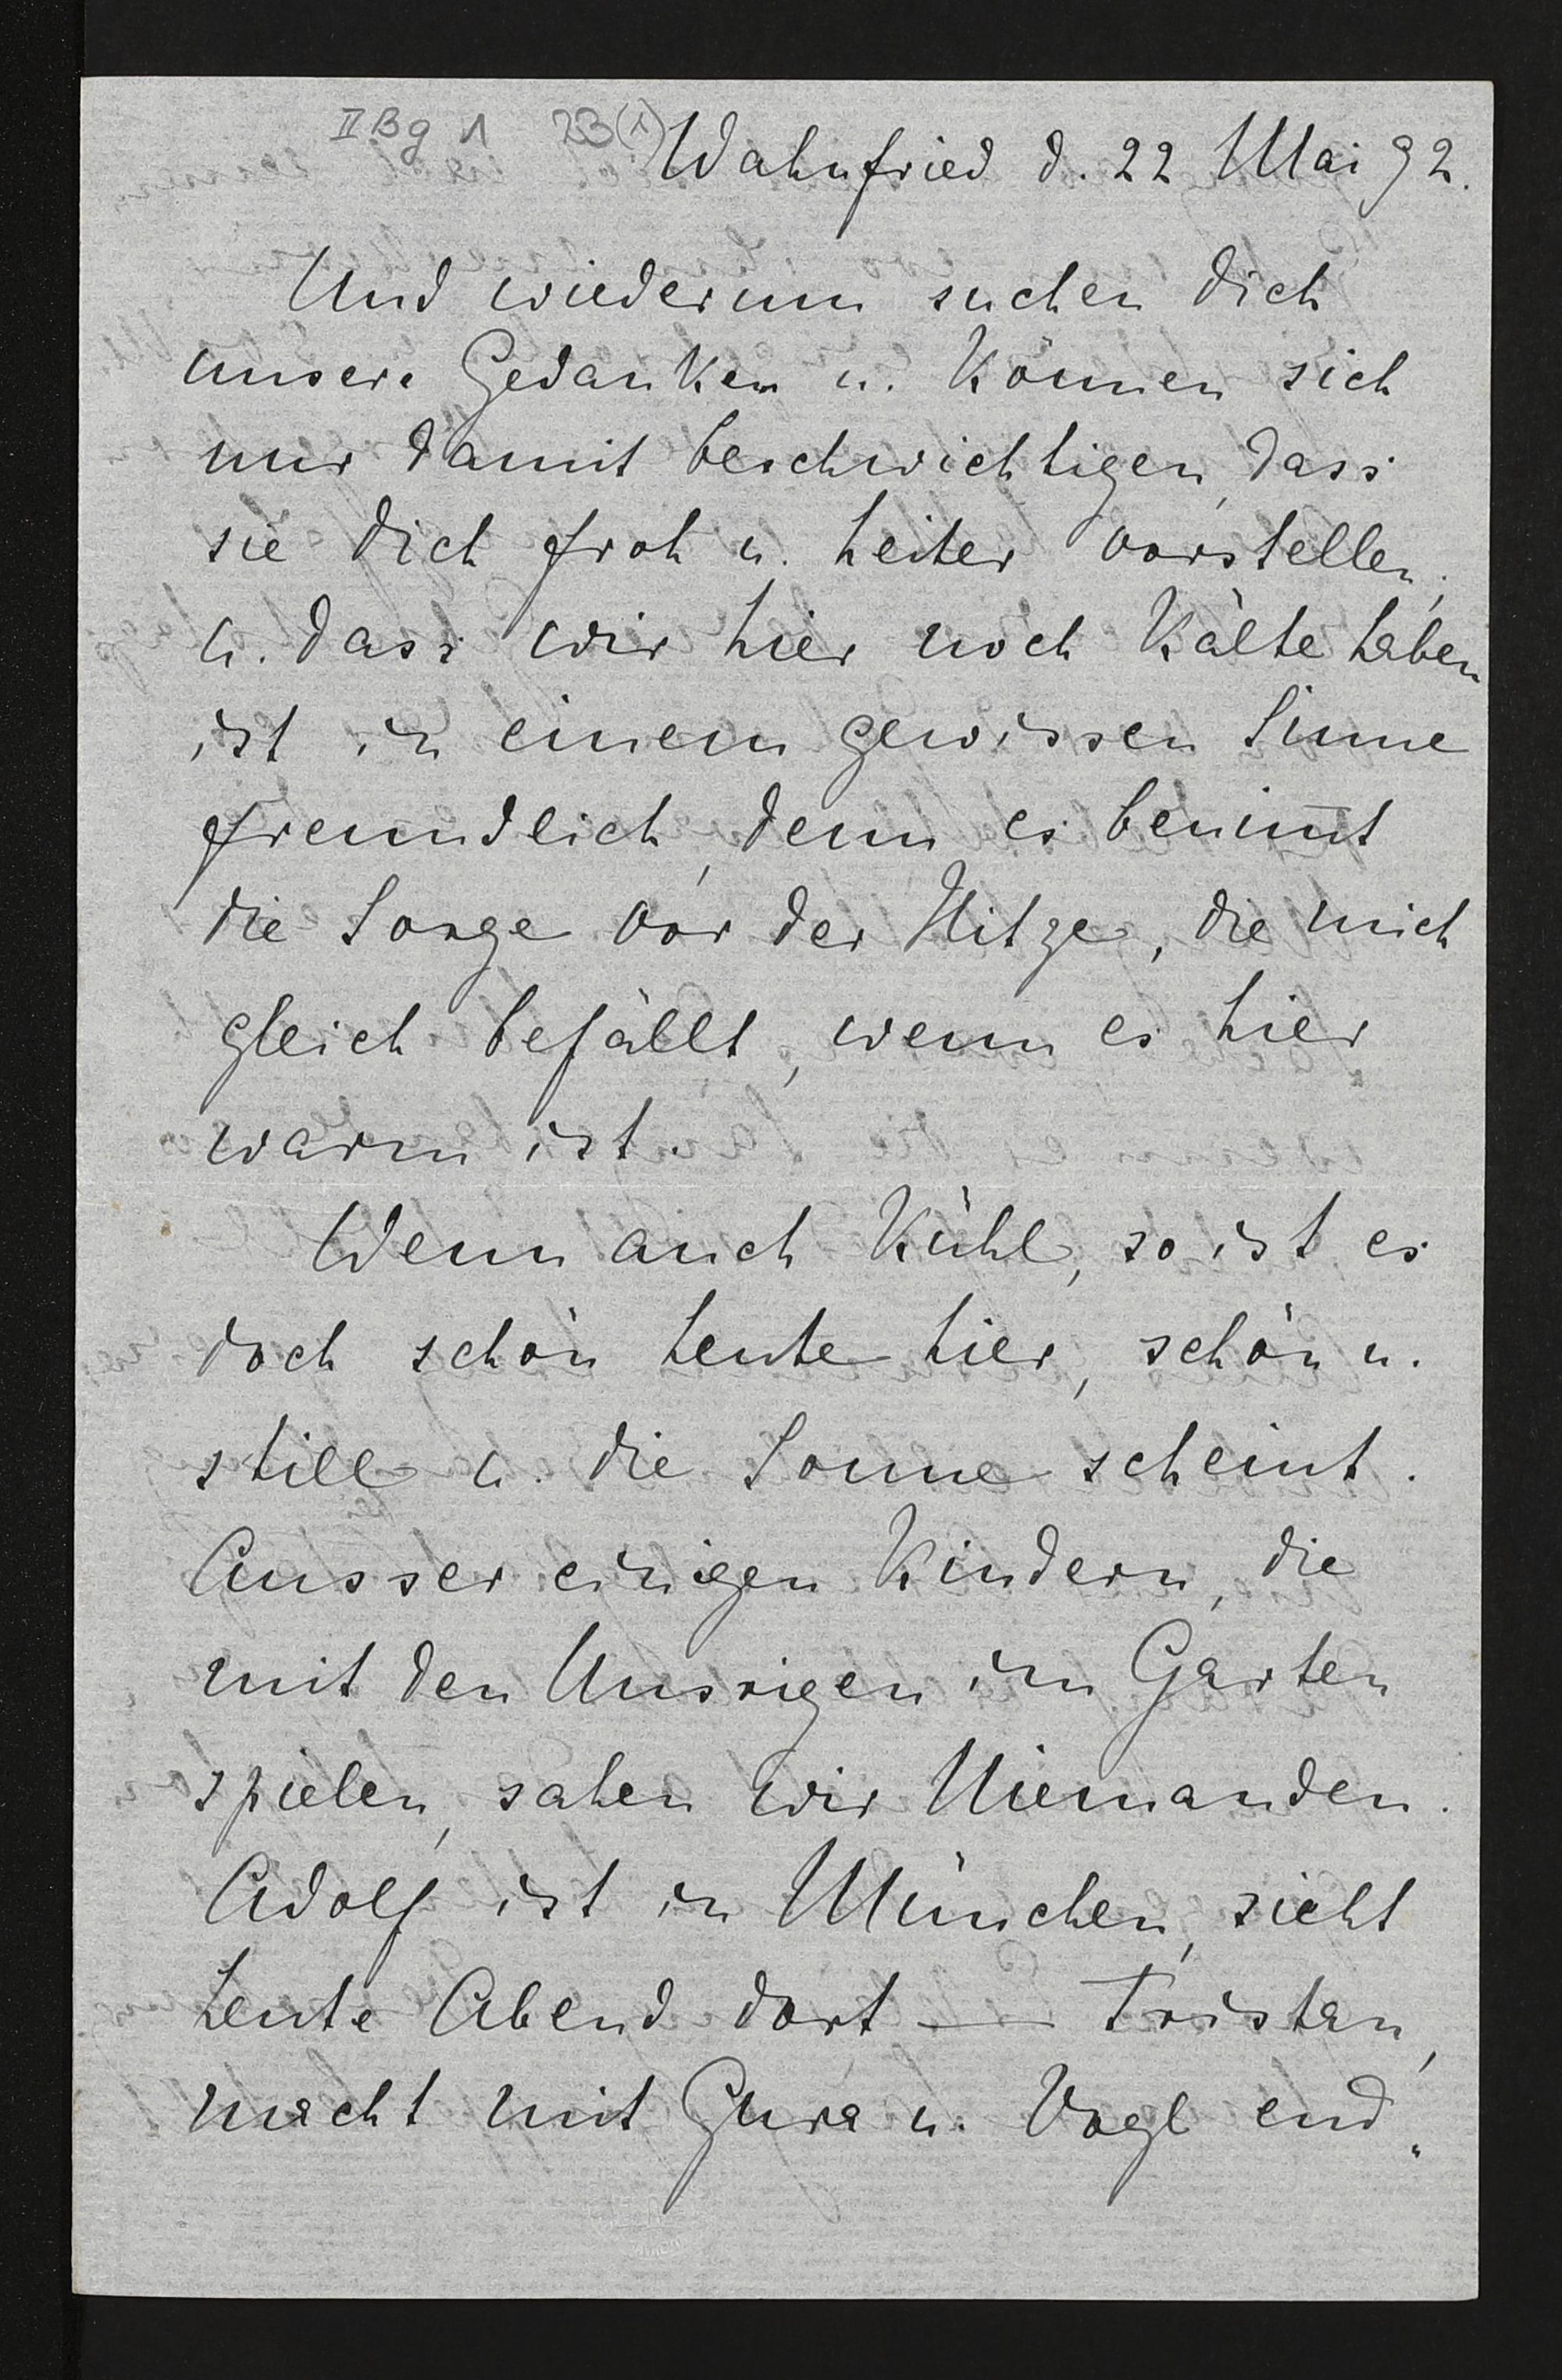 II Bg 1 23(1)
Wahnfried d. 22 Mai 92.
Und wiederum suchen dich
unsere Gedanken u. können sich
nur damit beschwichtigen, dass
sie dich froh u. heiter vorstellen,
u. dass wir hier noch Kälte haben
ist in einem gewissen Sinne
freundlich, denn es benim̅t
die Sorge vor der Hitze, die mich
gleich befällt, wenn es hier
warm ist.
Wenn auch kühl, so ist es
doch schön heute hier, schön u.
still u. die Sonne scheint.
Ausser einigen Kindern, die
mit den Unsrigen im Garten
spielen, sahen wir Niemanden.
Adolf ist in München, sieht
heute Abend dort — Tristan,
macht mit Gura u. Vogl end„